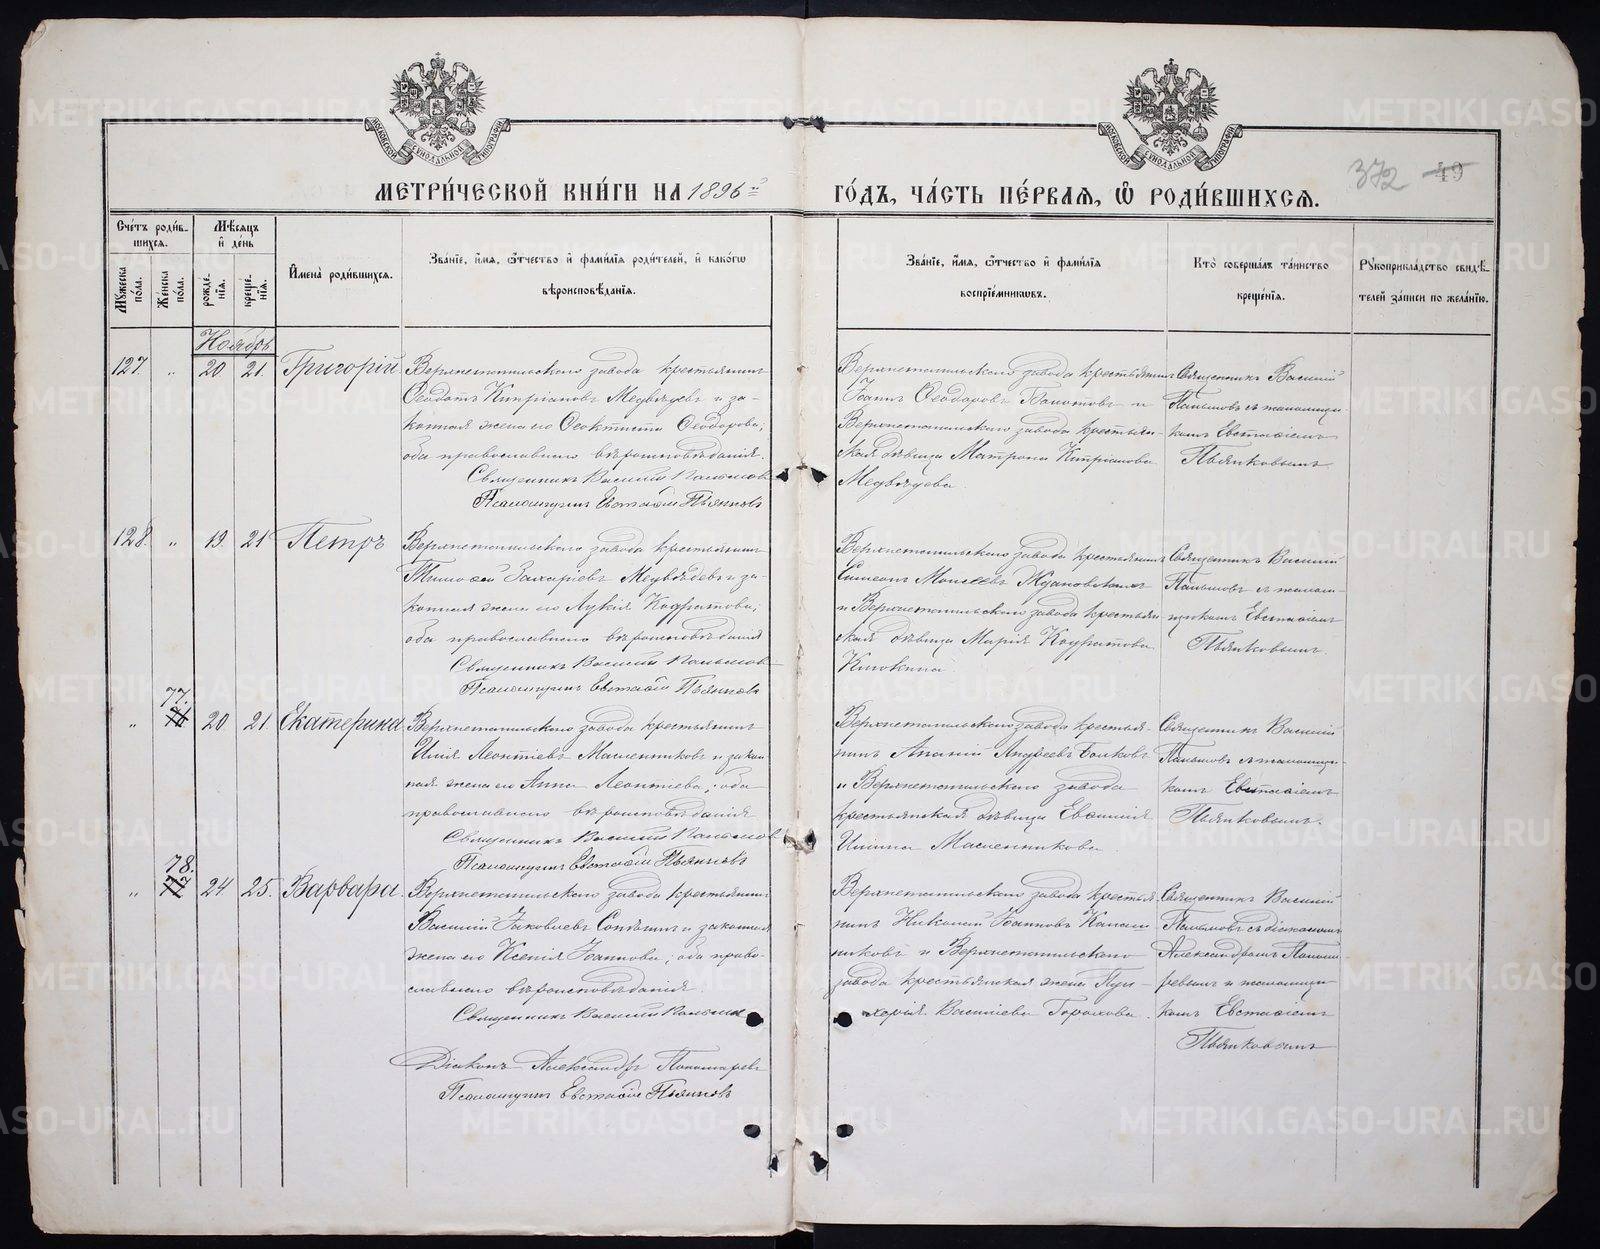 МОСКОВСКОЙ СѴНОДАЛЬНОЙ ТИПОГРАФІИ
МОСКОВСКОЙ СѴНОДАЛЬНОЙ ТИПОГРАФІИ
МЕТРИ́ЧЕСКОЙ КНИ́ГИ НА 1896й
ГО́ДЪ, ЧА́СТЬ ПЕ́РВАѦ, Ѿ РОДИ́ВШИХСѦ.
372 49
Сче́тъ роди́в-
шихсѧ.
Мѣ́сѧцъ
и҆ де́нь
Мꙋ́жеска
по́ла.
Же́нска
по́ла.
рожде́-
нїѧ.
креще́-
нїѧ.
И҆мена̀ роди́вшихсѧ.
Зва́нїе, и҆́мѧ, ѻ҆́тчество и҆ фами́лїѧ роди́телей, и҆ како́гѡ
вѣроисповѣ́данїѧ.
Зва́нїе, и҆́мѧ, ѻ҆́тчество и҆ фами́лїѧ
воспрїе́мникѡвъ.
Кто̀ соверша́лъ та́инство
креще́нїѧ.
Рꙋкоприкла́дство свидѣ́-
телей за́писи по жела́нїю.
Ноябрь
127. „ 20 21. Григорій
Верхнетагильскаго завода крестьянинъ
Ѳеодотъ Кипріановъ Медвѣдевъ и за-
конная жена его Ѳеоктиста Ѳеодорова;
оба православнаго вѣроисповѣданія.
Священникъ Василій
Псаломщикъ Евстаѳій Пьянковъ
Верхнетагильскаго завода крестьянинъ
Іоаннъ Ѳеодоровъ и
Верхнетагильскаго завода крестьян-
ская дѣвица Матрона Кипріанова
Медвѣдева.
Священникъ Василій
съ псаломщи-
комъ Евстаѳіемъ
Пьянковымъ.
128. „ 19. 21 Петръ
Верхнетагильскаго завода крестьянинъ
Тимоѳей Захаріевъ Медвѣдевъ и за-
конная жена его Лукія Кодратова;
оба православнаго вѣроисповѣданія
Священникъ Василій
Псаломщикъ Евстаѳій Пьянковъ
Верхнетагильскаго завода крестьянинъ
Симеонъ Моисеевъ
и Верхнетагильскаго завода крестьян
ская дѣвица Марія Кодратова
Священникъ Василій
съ псалом-
щикомъ Евстаѳіемъ
Пьянковымъ.
„ 77. 20 21. Екатерина
Верхнетагильскаго завода крестьянинъ
Илія Леонтіевъ Масленниковъ и закон
ная жена его Анна Леонтіева; оба
православнаго вѣроисповѣданія
Священникъ Василій
Псаломщикъ Евстаѳій Пьянковъ
Верхнетагильскаго завода крестья-
нинъ Ананій Андреевъ
и Верхнетагильскаго завода
крестьянская дѣвица Евѳимія
Иліина Масленникова
Священникъ Василій
съ псаломщи-
комъ Евстаѳіемъ
Пьянковымъ.
„ 78. 24 25. Варвара
Верхнетагильскаго завода крестьянинъ
Василій Іаковлевъ и законная
жена его Ксенія Іоаннова; оба право-
славнаго вѣроисповѣданія.
Священникъ Василій
Діаконъ Александръ Пономаревъ
Псаломщикъ Евстаѳій Пьянковъ
Верхнетагильскаго завода крестья-
нинъ Николай Іоанновъ
и Верхнетагильскаго
завода крестьянская жена Пул-
херія Васильева Горохова.
Священникъ Василій
съ діакономъ
Александромъ Понома-
ревымъ и псаломщи-
комъ Евстаѳіемъ
Пьянковымъ
METRIKI.GASO-URAL.RU